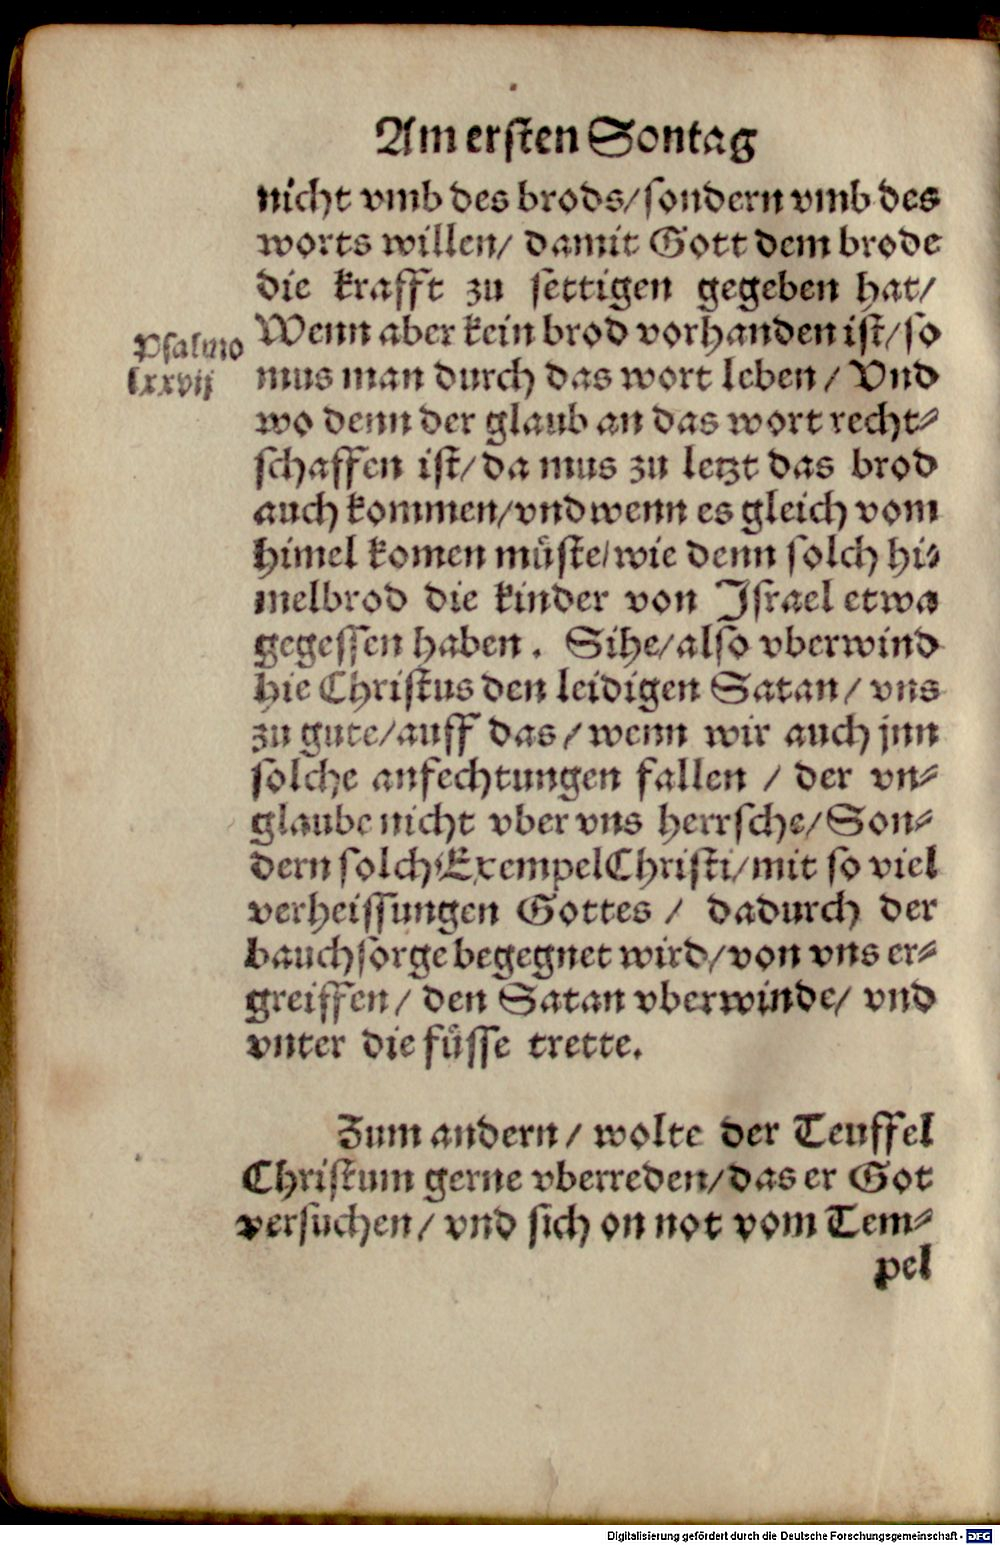 Am ersten Sontag
nicht vmb des brods/sondern vmb des
worts willen/ damit Gott dem brode
die krafft zu settigen gegeben hat/
Wenn aber kein brod vorhanden ist/so
Psalmo
lxxvij
mus man durch das wort leben/ Vnd
wo denn der glaub an das wort recht⸗
schaffen ist/da mus zu letzt das brod
auch kommen/vnd wenn es gleich vom
himel komen müste/wie denn solch hi⸗
melbrod die kinder von Israel etwa
gegessen haben. Sihe/also vberwind
hie Christus den leidigen Satan/ vns
zu gute/auff das/wenn wir auch jnn
solche anfechtungen fallen / der vn⸗
glaube nicht vber vns herrsche/Son⸗
dern solch Exempel Christi/mit so viel
verheissungen Gottes / dadurch der
bauchsorge begegnet wird/von vns er⸗
greiffen/ den Satan vberwinde/ vnd
vnter die füsse trette.
Zum andern/ wolte der Teuffel
Christum gerne vberreden/das er Got
versuchen/ vnd sich on not vom Tem⸗
pel
Digitalisierung gefördert durch die Deutsche Forschungsgemeinschaft - DFG